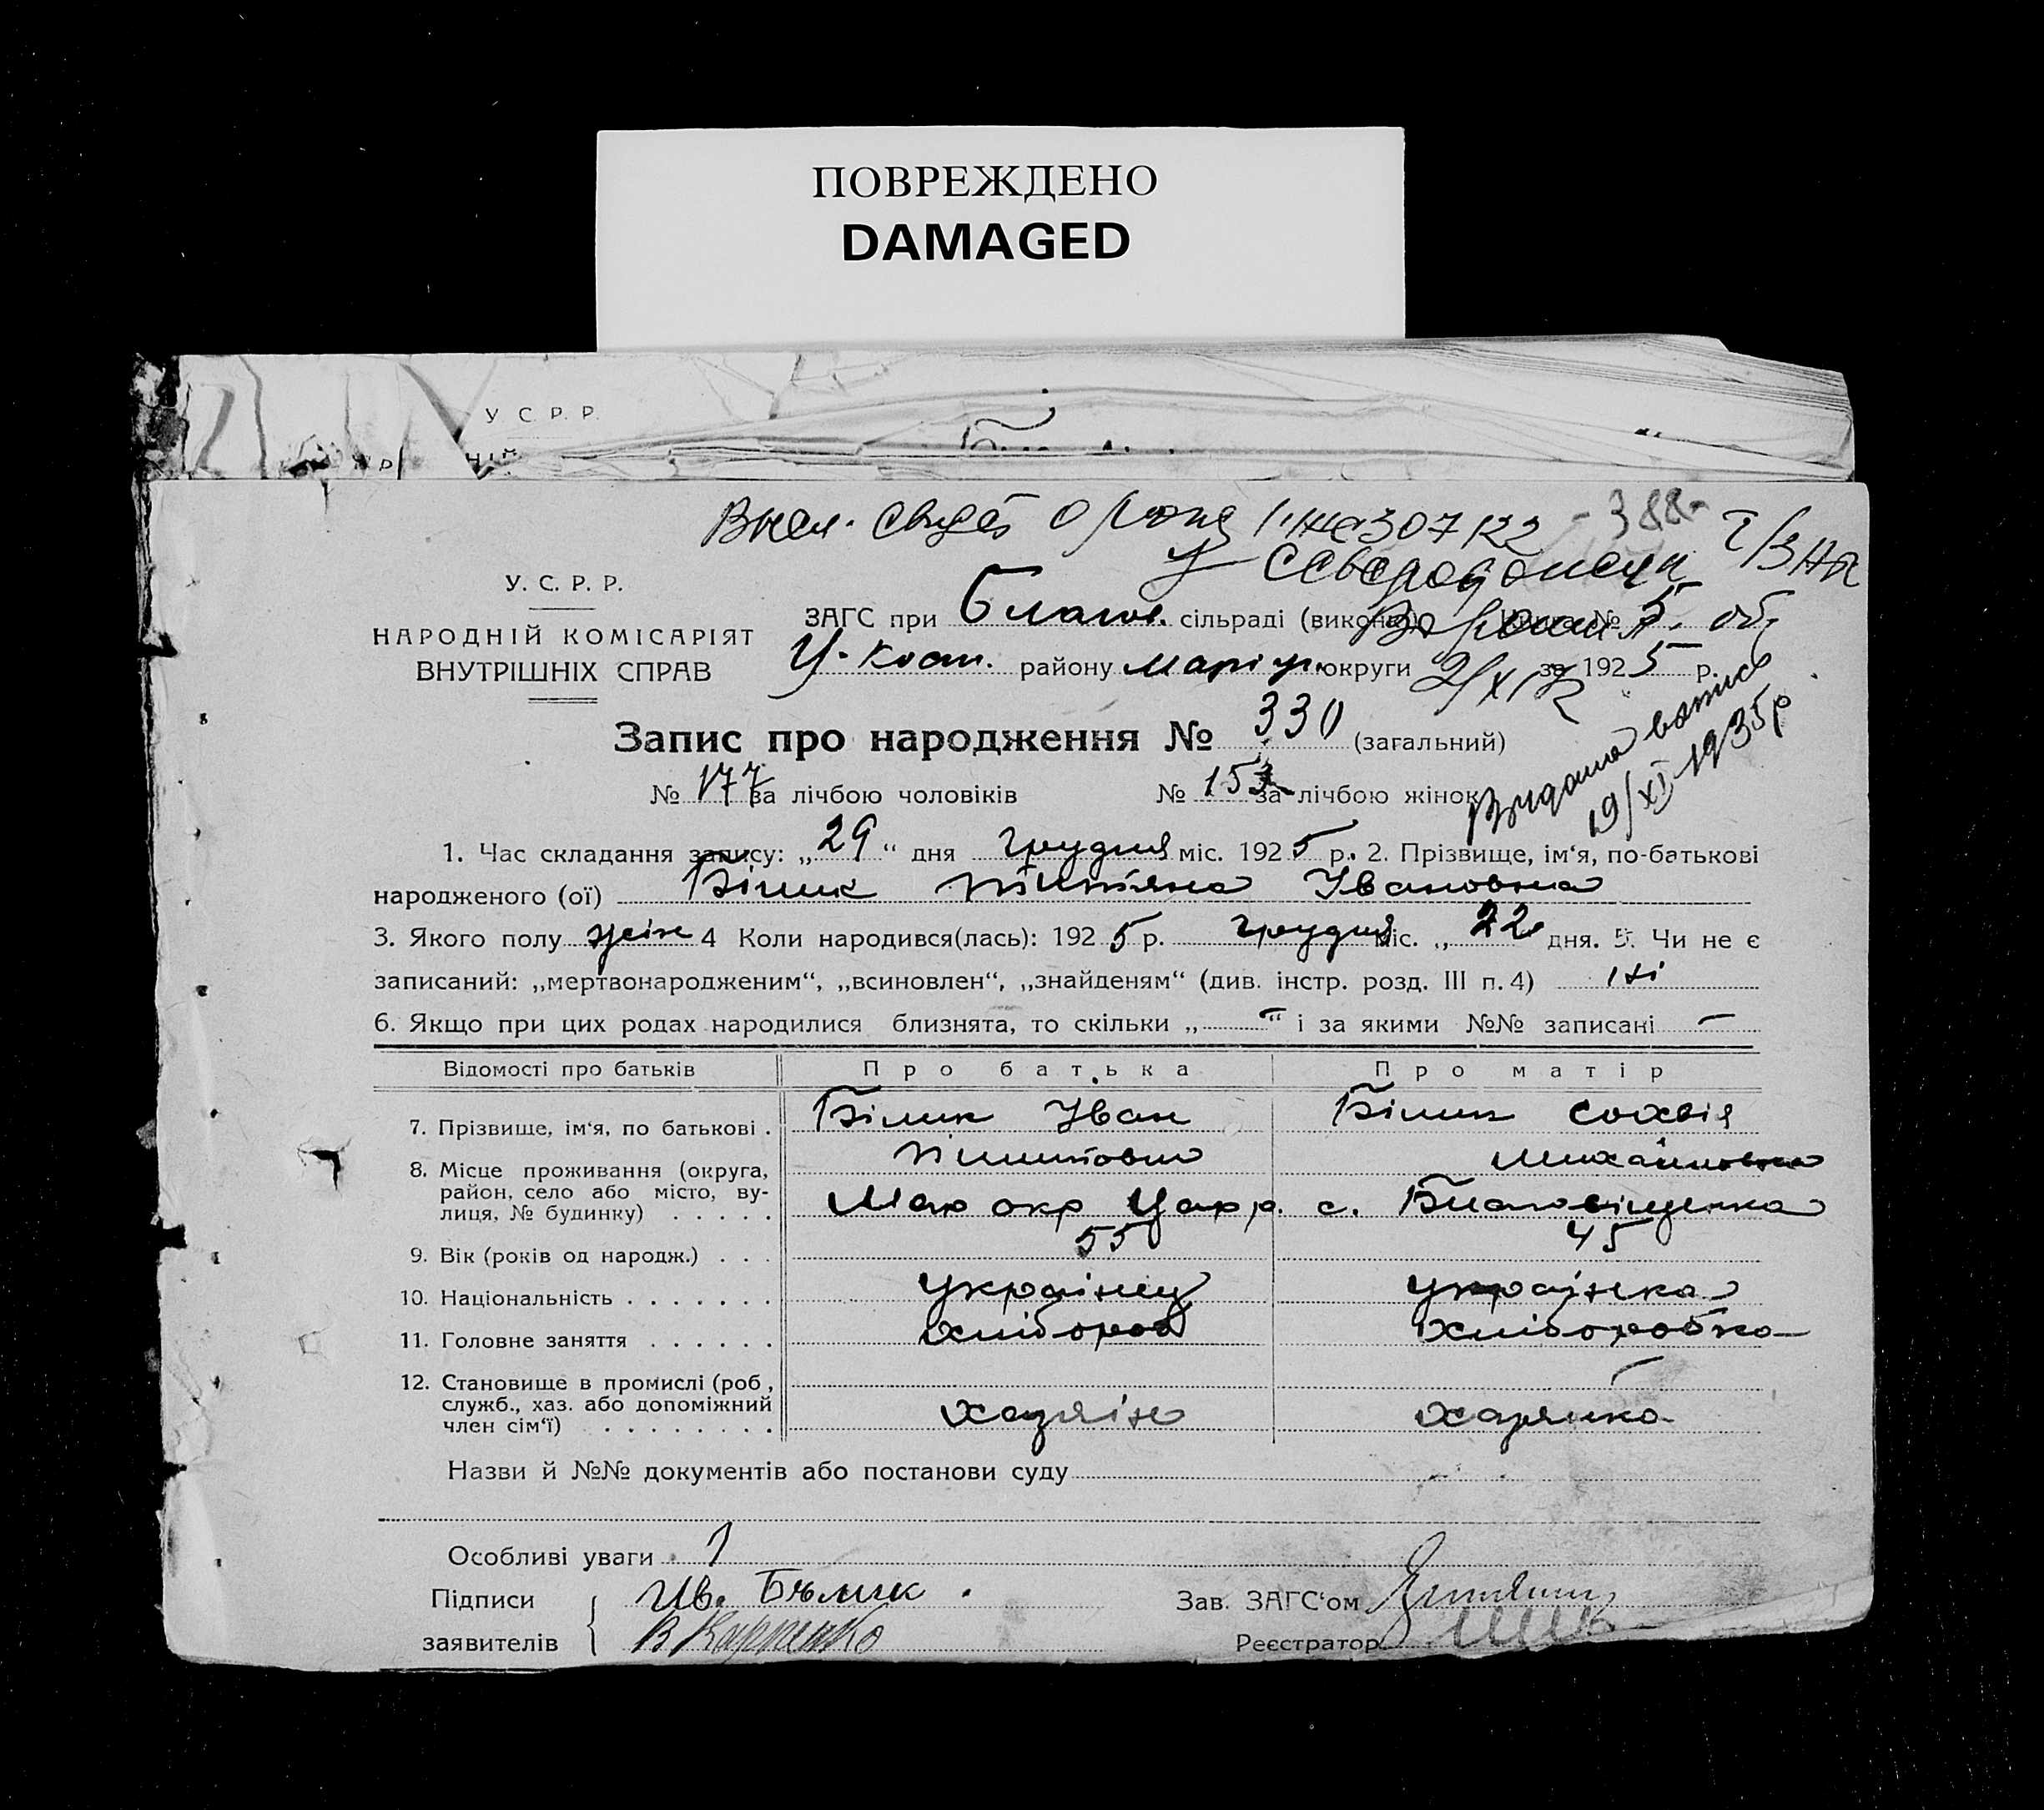 ПОВРЕЖДЕНО
DAMAGED
У С Р. Р.
свид о рожд 307122 -388-
У. С. Р. Р.
НАРОДНІЙ КОМІСАРІЯТ
ВНУТРІШНІХ СПРАВ
ЗАГС при Благов. сільраді (виконк) Книга № 5. об.
Ц-Конст. району Маріуп. округи за 1925 р.
Запис про народження № 330 (загальний)
№ 177 за лічбою чоловіків № 153 за лічбою жінок
Видана выпись
19/XI 1935р
1. Час складання запису: „29“ дня грудня міс. 1925 р. 2. Прізвище, ім‘я, по-батькові
народженого (ої) Білик Тітяна Івановна
3. Якого полу жін 4 Коли народився(лась): 1925 р. грудня міс. „22 дня. 5. Чи не є
записаний: „мертвонародженим“, „всиновлен“, „знайденям“ (див. інстр. розд. III п. 4) ні
6. Якщо при цих родах народилися близнята, то скільки „—“ і за якими №№ записані —
Відомості про батьків Про батька Про матір
7. Прізвище, ім‘я, по батькові . Білик Іван Білик Сохвія
Михайловна
8. Місце проживання (округа, район, село або місто, вулиця, № будинку) . . . . . Мар окр Цар р. с. Благовіщенка
9. Вік (років од народж.) . . . 55 45
10. Національність . . . . . . . українец українка
11. Головне заняття . . . . . . хлібороб хліборобка
12. Становище в промислі (роб., служб., хаз. або допоміжний член сім‘ї) . . . . . . . . хазяін хазяйка
Назви й №№ документів або постанови суду
Особливі уваги
Підписи Ив. Бѣлик. Зав. ЗАГС‘ом
заявителів В Карпенко Реєстратор